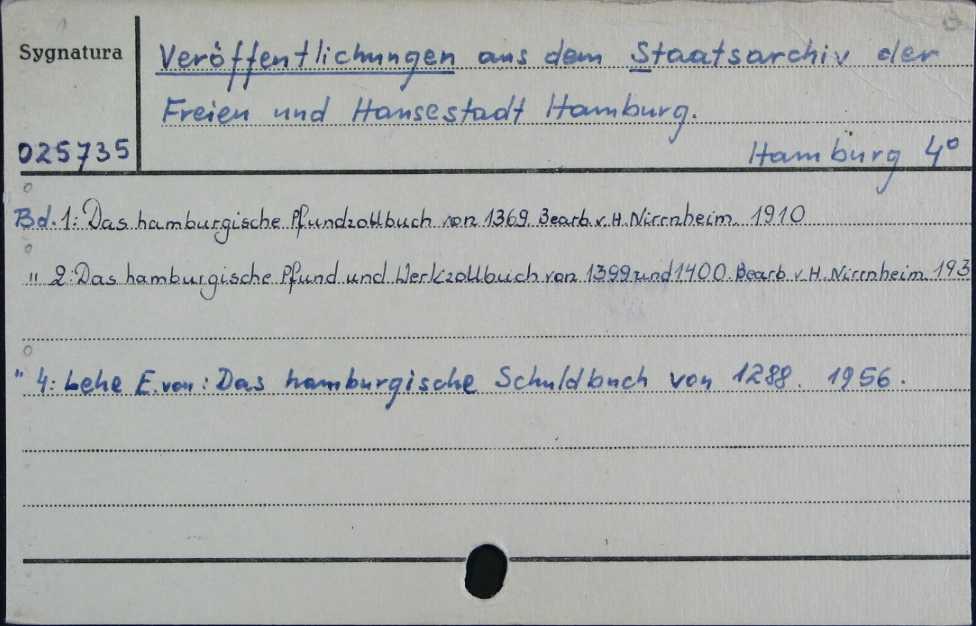 Sygnatura
Veröffentlichungen aus dem Staatsarchiv der
Freien und Hansestadt Hamburg.
025735
Hamburg 4°
Bd. 1: Das hamburgische Pfundzollbuch von 1369. Bearb. v. H. Nirrnheim. 1910
" 2: Das hamburgische Pfund und Werkzollbuch von 1399 und 1400. Bearb. v. H. Nirrnheim. 193
" 4: Lehe E. von: Das hamburgische Schuldbuch von 1288. 1956.